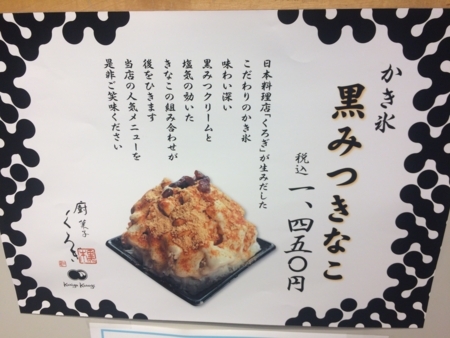 かき氷
黒みつきなこ
税込 一、四五〇円
日本料理店「くろぎ」が生みだした
こだわりのかき氷
味わい深い
黒みつクリームと
塩気の効いた
きなこの組み合わせが
後をひきます
当店の人気メニューを
是非ご笑味ください
廚菓子
くろぎ